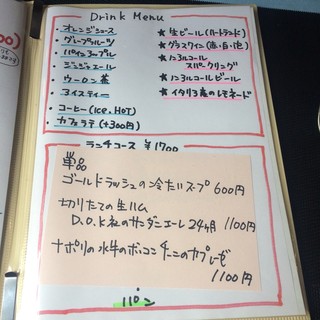 Drink Menu
・オレンジジュース
・グレープフルーツ
・パインアップル
・ジンジャエール
・ウーロン茶
・アイスティー
・コーヒー(Ice, HOT)
・カフェラテ(+300円)
★生ビール(ハートランド)
★グラスワイン(赤・白・泡)
★ノンアルコールスパークリング
★ノンアルコールビール
★イタリア産のレモネード
ランチコース ¥1700
単品
ゴールドラッシュの冷たいスープ 600円
切りたての生ハム
D.O.K社のサンダニエーレ24ヶ月 1100円
ナポリの水牛のボッコンチーニのカプレーゼ
1100円